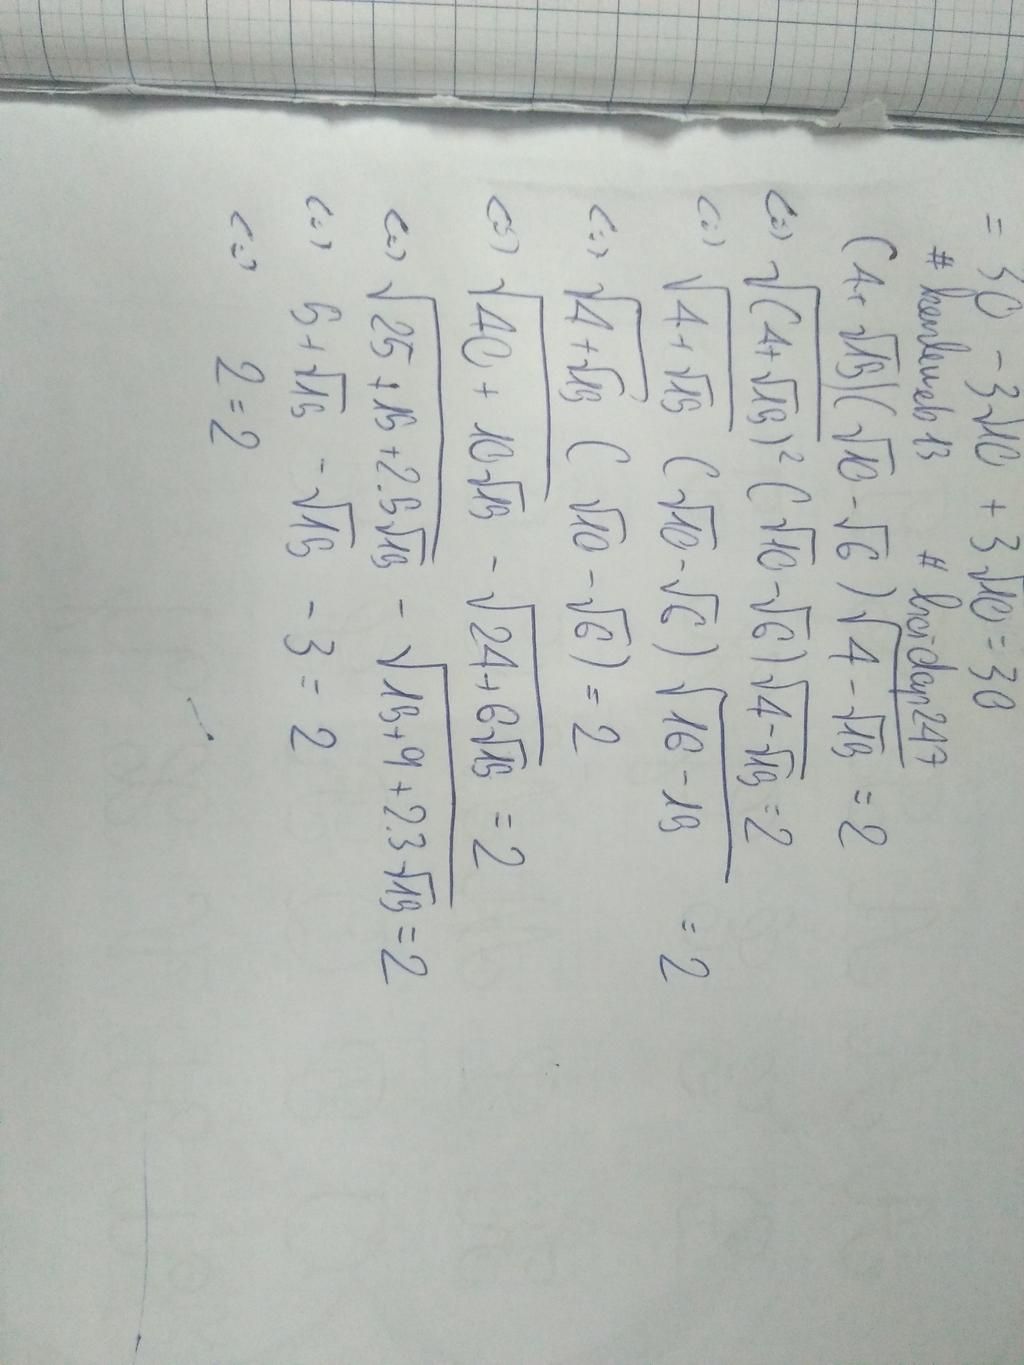 = 30 - 3√10 + 3√10 = 30
# hoidap247
(4+√15)(√10-√6)√4-√15 = 2
(=) √(4+√15)²(√10-√6)√4-√15 = 2
(=) √4+√15 (√10-√6) √16-15 = 2
(=) √4+√15 (√10-√6) = 2
(=) √40+10√15 - √24+6√15 = 2
(=) √25+15+2.5√15 - √15+9+2.3√15 = 2
(=) 5+√15 - √15 - 3 = 2
(=) 2=2